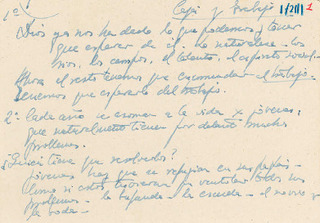 1º
y trabajo
1/21/1
Dios ya nos ha dado lo que podemos y tener
que esperar de él. La naturaleza - los
ríos, los campos, el talento, el espíritu social -
Ahora el resto tenemos que encomendar el trabajo.
Tenemos que esperarlo del trabajo.
2º Cada año se asoman a la vida x jóvenes,
que naturalmente tienen por delante muchos
problemas.
¿Quién tiene que resolverlos?
Jóvenes hay que se refugian en sus papás -
como si estos tuvieran que ventilar todos sus
problemas - la - la escuela - el novio -
la boda -